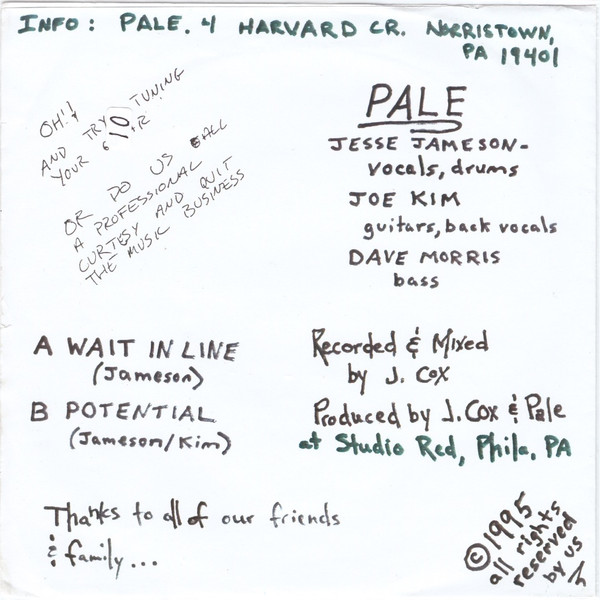 INFO: PALE. 4 HARVARD CR. NORRISTOWN,
PA 19401
OH!!
AND TRY TUNING
YOUR
OR DO US ALL
A PROFESSIONAL
CURTESY AND QUIT
THE MUSIC BUSINESS
PALE
JESSE JAMESON-
vocals, drums
JOE KIM
guitars, back vocals
DAVE MORRIS
bass
A WAIT IN LINE
(Jameson)
B POTENTIAL
(Jameson/Kim)
Recorded & Mixed
by J. Cox
Produced by J. Cox & Pale
at Studio Red, Phila, PA
Thanks to all of our friends
& family...
©1995
all rights
reserved
by us